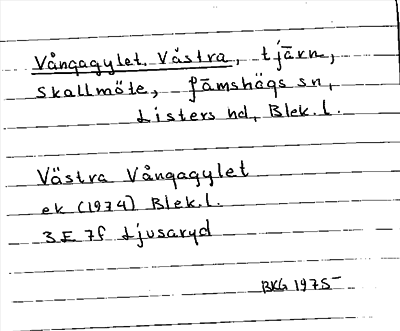 Vångagylet, Västra, tjärn,
Skallmöte, Jämshögs sn,
Listers hd, Blek.l.
Västra Vångagylet
ek (1974) Blek.l.
3E 7f Ljusaryd
BKG 1975